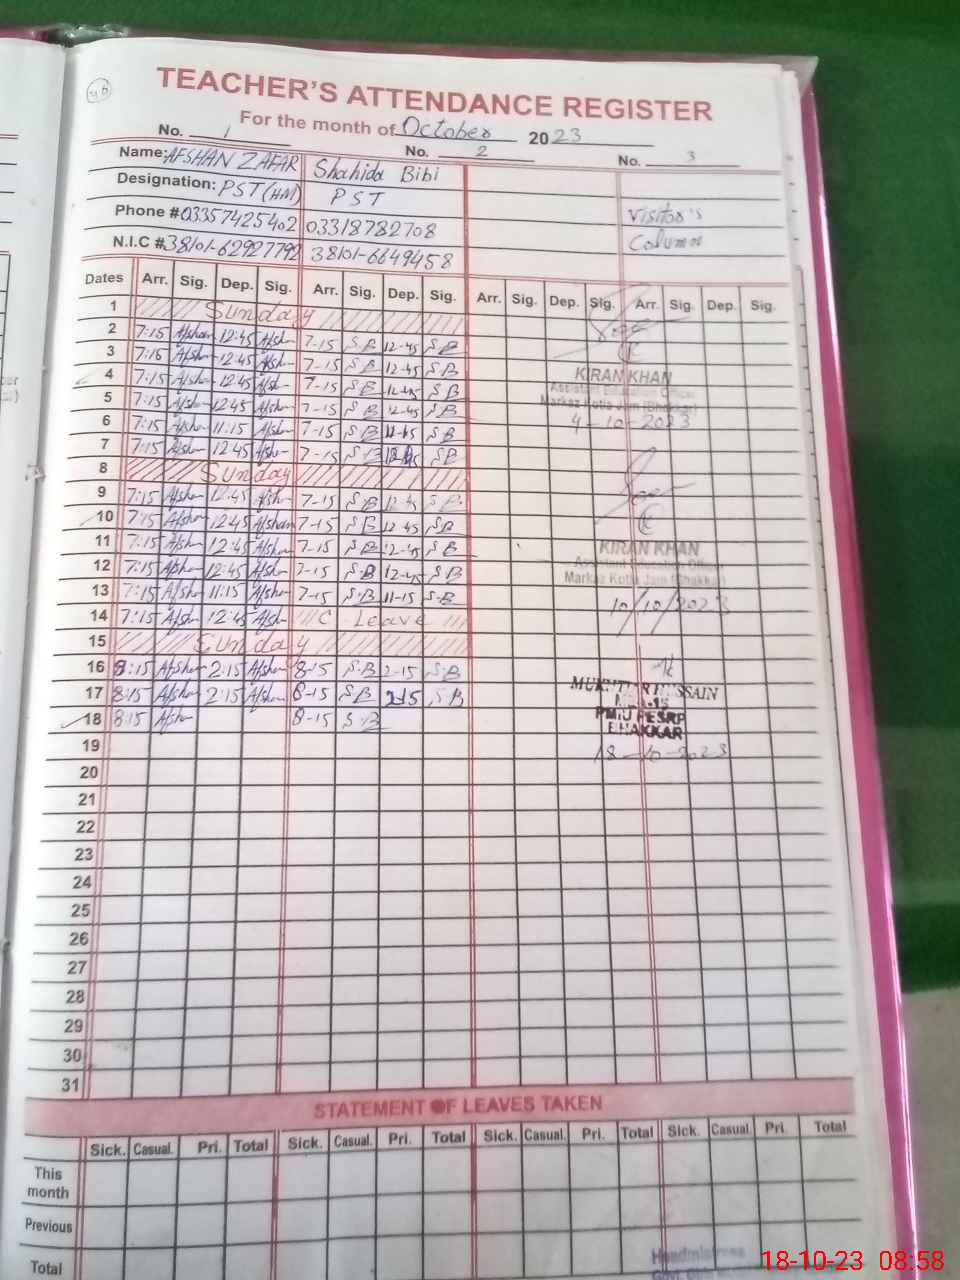 46
TEACHER'S ATTENDANCE REGISTER
For the month of October 2023
No. 1 No. 2 No. 3
Name: AFSHAN ZAFAR Shahida Bibi
Designation: PST (HM) PST Visitor's
Phone # 03357425402 03318782708 Column
N.I.C # 38101-62927792 38101-6649458
Dates Arr. Sig. Dep. Sig. Arr. Sig. Dep. Sig. Arr. Sig. Dep. Sig. Arr. Sig. Dep. Sig.
1 Sunday
2 7:15 Afshan 12:45 Afshan 7-15 S.B 12-45 S.B
3 7:15 Afshan 12:45 Afshan 7-15 S.B 12-45 S.B
4 7:15 Afshan 12:45 Afshan 7-15 S.B 12-45 S.B
KIRAN KHAN
Assistant Education Officer
5 7:15 Afshan 12:45 Afshan 7-15 S.B 12-45 S.B
Markaz Kotla Jam (Bhakkar)
6 7:15 Afshan 11:15 Afshan 7-15 S.B 11-15 S.B
4-10-2023
7 7:15 Afshan 12:45 Afshan 7-15 S.B 12-45 S.B
8 Sunday
9 7:15 Afshan 12:45 Afshan 7-15 S.B 12-45 S.B
10 7:15 Afshan 12:45 Afshan 7-15 S.B 12-45 S.B
11 7:15 Afshan 12:45 Afshan 7-15 S.B 12-45 S.B
KIRAN KHAN
Assistant Education Officer
12 7:15 Afshan 12:45 Afshan 7-15 S.B 12-45 S.B
Markaz Kotla Jam (Bhakkar)
13 7:15 Afshan 11:15 Afshan 7-15 S.B 11-15 S.B
10/10/2023
14 7:15 Afshan 12:45 Afshan C Leave
15 Sunday
16 8:15 Afshan 2:15 Afshan 8-15 S.B 2-15 S.B
MUKHTIAR HUSSAIN
17 8:15 Afshan 2:15 Afshan 8-15 S.B 2-15 S.B
PMIU PESRP
18 8:15 Afshan 8-15 S.B
BHAKKAR
18-10-2023
19
20
21
22
23
24
25
26
27
28
29
30
31
STATEMENT OF LEAVES TAKEN
Sick. Casual. Pri. Total Sick. Casual. Pri. Total Sick. Casual. Pri. Total Sick. Casual. Pri. Total
This
month
Previous
Total
Headmistress
18-10-23 08:58